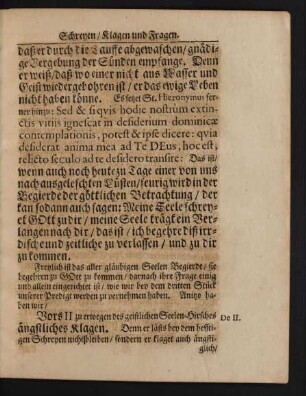 Schreyen/ Klagen und Fragen.
daß er durch die Tauffe abgewaschen/ gnädi-
ge Vergebung der Sünden empfange. Denn
er weiß/ daß wo einer nicht aus Wasser und
Geist wiedergebohren ist/ er das ewige Leben
nicht haben könne. Es setzet St. Hieronymus fer-
ner hinzu: Sed & siqvis hodie nostrûm extin-
ctis vitiis ignescat in desiderium dominicæ
contemplationis, potest & ipse dicere: qvia
desiderat anima mea ad Te DEus, hoc est,
relicto seculo ad te desidero transire: Das ist/
wenn auch noch heute zu Tage einer von uns
nach ausgeleschten Lüsten/ feurig wird in der
Begierde der göttlichen Betrachtung/ der
kan sodann auch sagen: Meine Seele schrey-
et GOtt zu dir/ meine Seele trägt ein Ver-
langen nach dir/ das ist/ ich begehre diß irr-
disch und zeitliche zu verlassen/ und zu dir
zu kommen.
Freylich ist das aller gläubigen Seelen Begierde/ sie
begehren zu GOtt zu kommen/ darnach ihre Frage einig
und allein eingerichtet ist/ wie wir bey dem dritten Stück
unserer Predigt werden zu vernehmen haben. Anitzo haben
wir/
Vors II zu erwegen des geistlichen Seelen-Hirsches De II.
ängstliches Klagen. Denn er läßts bey dem hefftti-
gen Schreyen nicht bleiben/ sondern er klaget auch ängst-
glich/